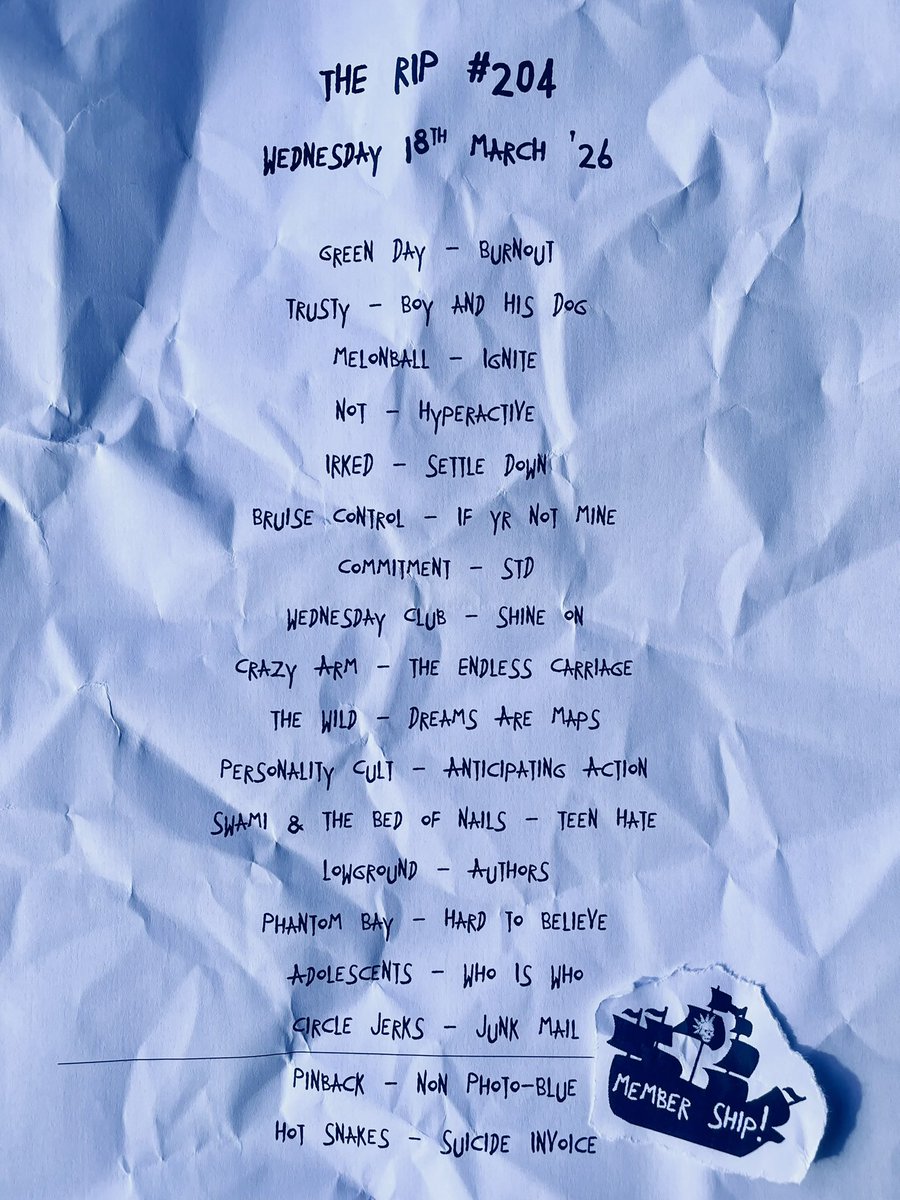 THE RIP #204
WEDNESDAY 18TH MARCH '26
GREEN DAY – BURNOUT
TRUSTY – BOY AND HIS DOG
MELONBALL – IGNITE
NOT – HYPERACTIVE
IRKED – SETTLE DOWN
BRUISE CONTROL – IF YR NOT MINE
COMMITMENT – STD
WEDNESDAY CLUB – SHINE ON
CRAZY ARM – THE ENDLESS CARRIAGE
THE WILD – DREAMS ARE MAPS
PERSONALITY CULT – ANTICIPATING ACTION
SWAMI & THE BED OF NAILS – TEEN HATE
LOWGROUND – AUTHORS
PHANTOM BAY – HARD TO BELIEVE
ADOLESCENTS – WHO IS WHO
CIRCLE JERKS – JUNK MAIL
PINBACK – NON PHOTO-BLUE
HOT SNAKES – SUICIDE INVOICE
MEMBER SHIP!